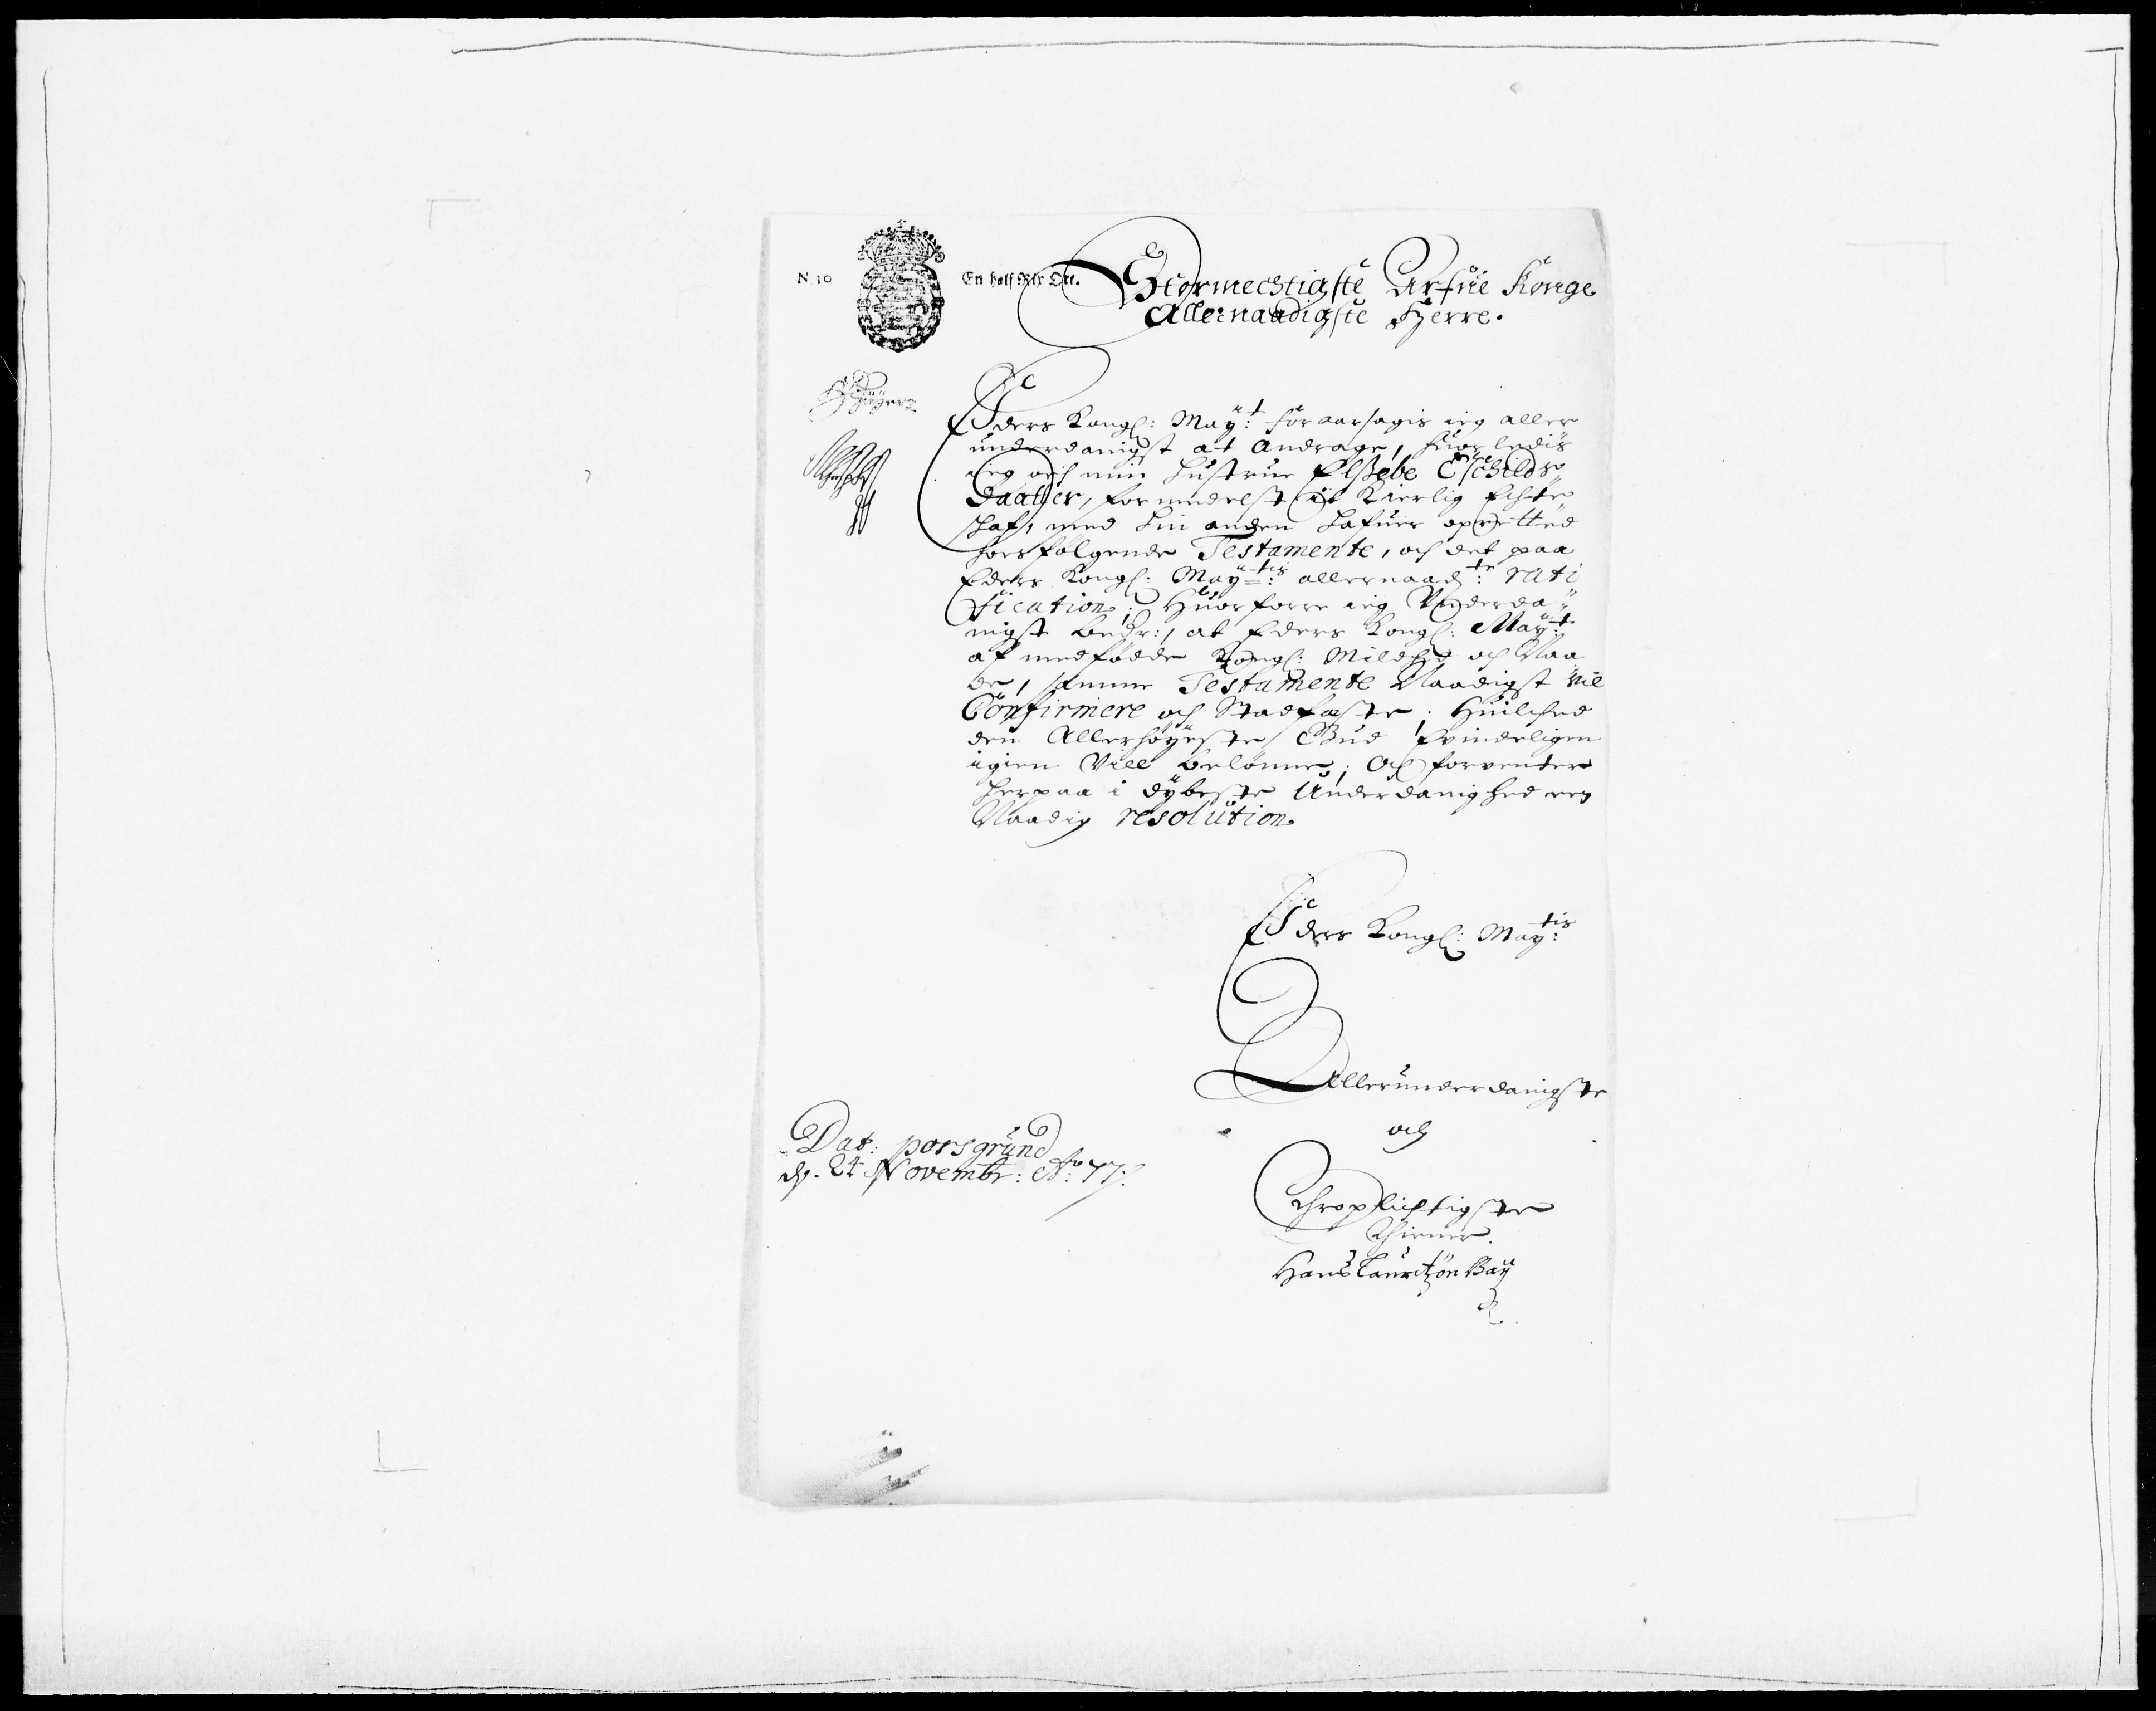 N 10
En half Rdr Ort.
Stormechtigste Arfue Konge
Allernaadigste Herre.
Eders Kongl: Mayt: foraarsagis ieg aller
underdanigst at Andrage, huorledis
ieg och min hustrue Elssebe Eschilds
daatter, formedelst it Kierlig Echte
schaf, med hin anden hafuer opretted
hoesfølgende Testamente, och det paa
Eders Kongl: Maytis: allernaadte: rati
fication; Huorforre ieg Underda
nigst beder, at Eders Kongl: Mayt:
af medfødde Kongl: Mildhed och Naa
de, samme Testamente Naadigst vil
Confirmere och Stadfæste; Huilched
den Allerhøyeste Gud Evindeligen
igien Vill belønne; Och forventer
herpaa i dybeste Underdanighed een
Naadig resolution.
Eders Kongl: Maytis:
Allerunderdanigste
och
Throplichtigste
Thiener.
Hans Lauritzøn Bay
Dat: porsgrund
dn. 24 Novembr: Ao: 77.